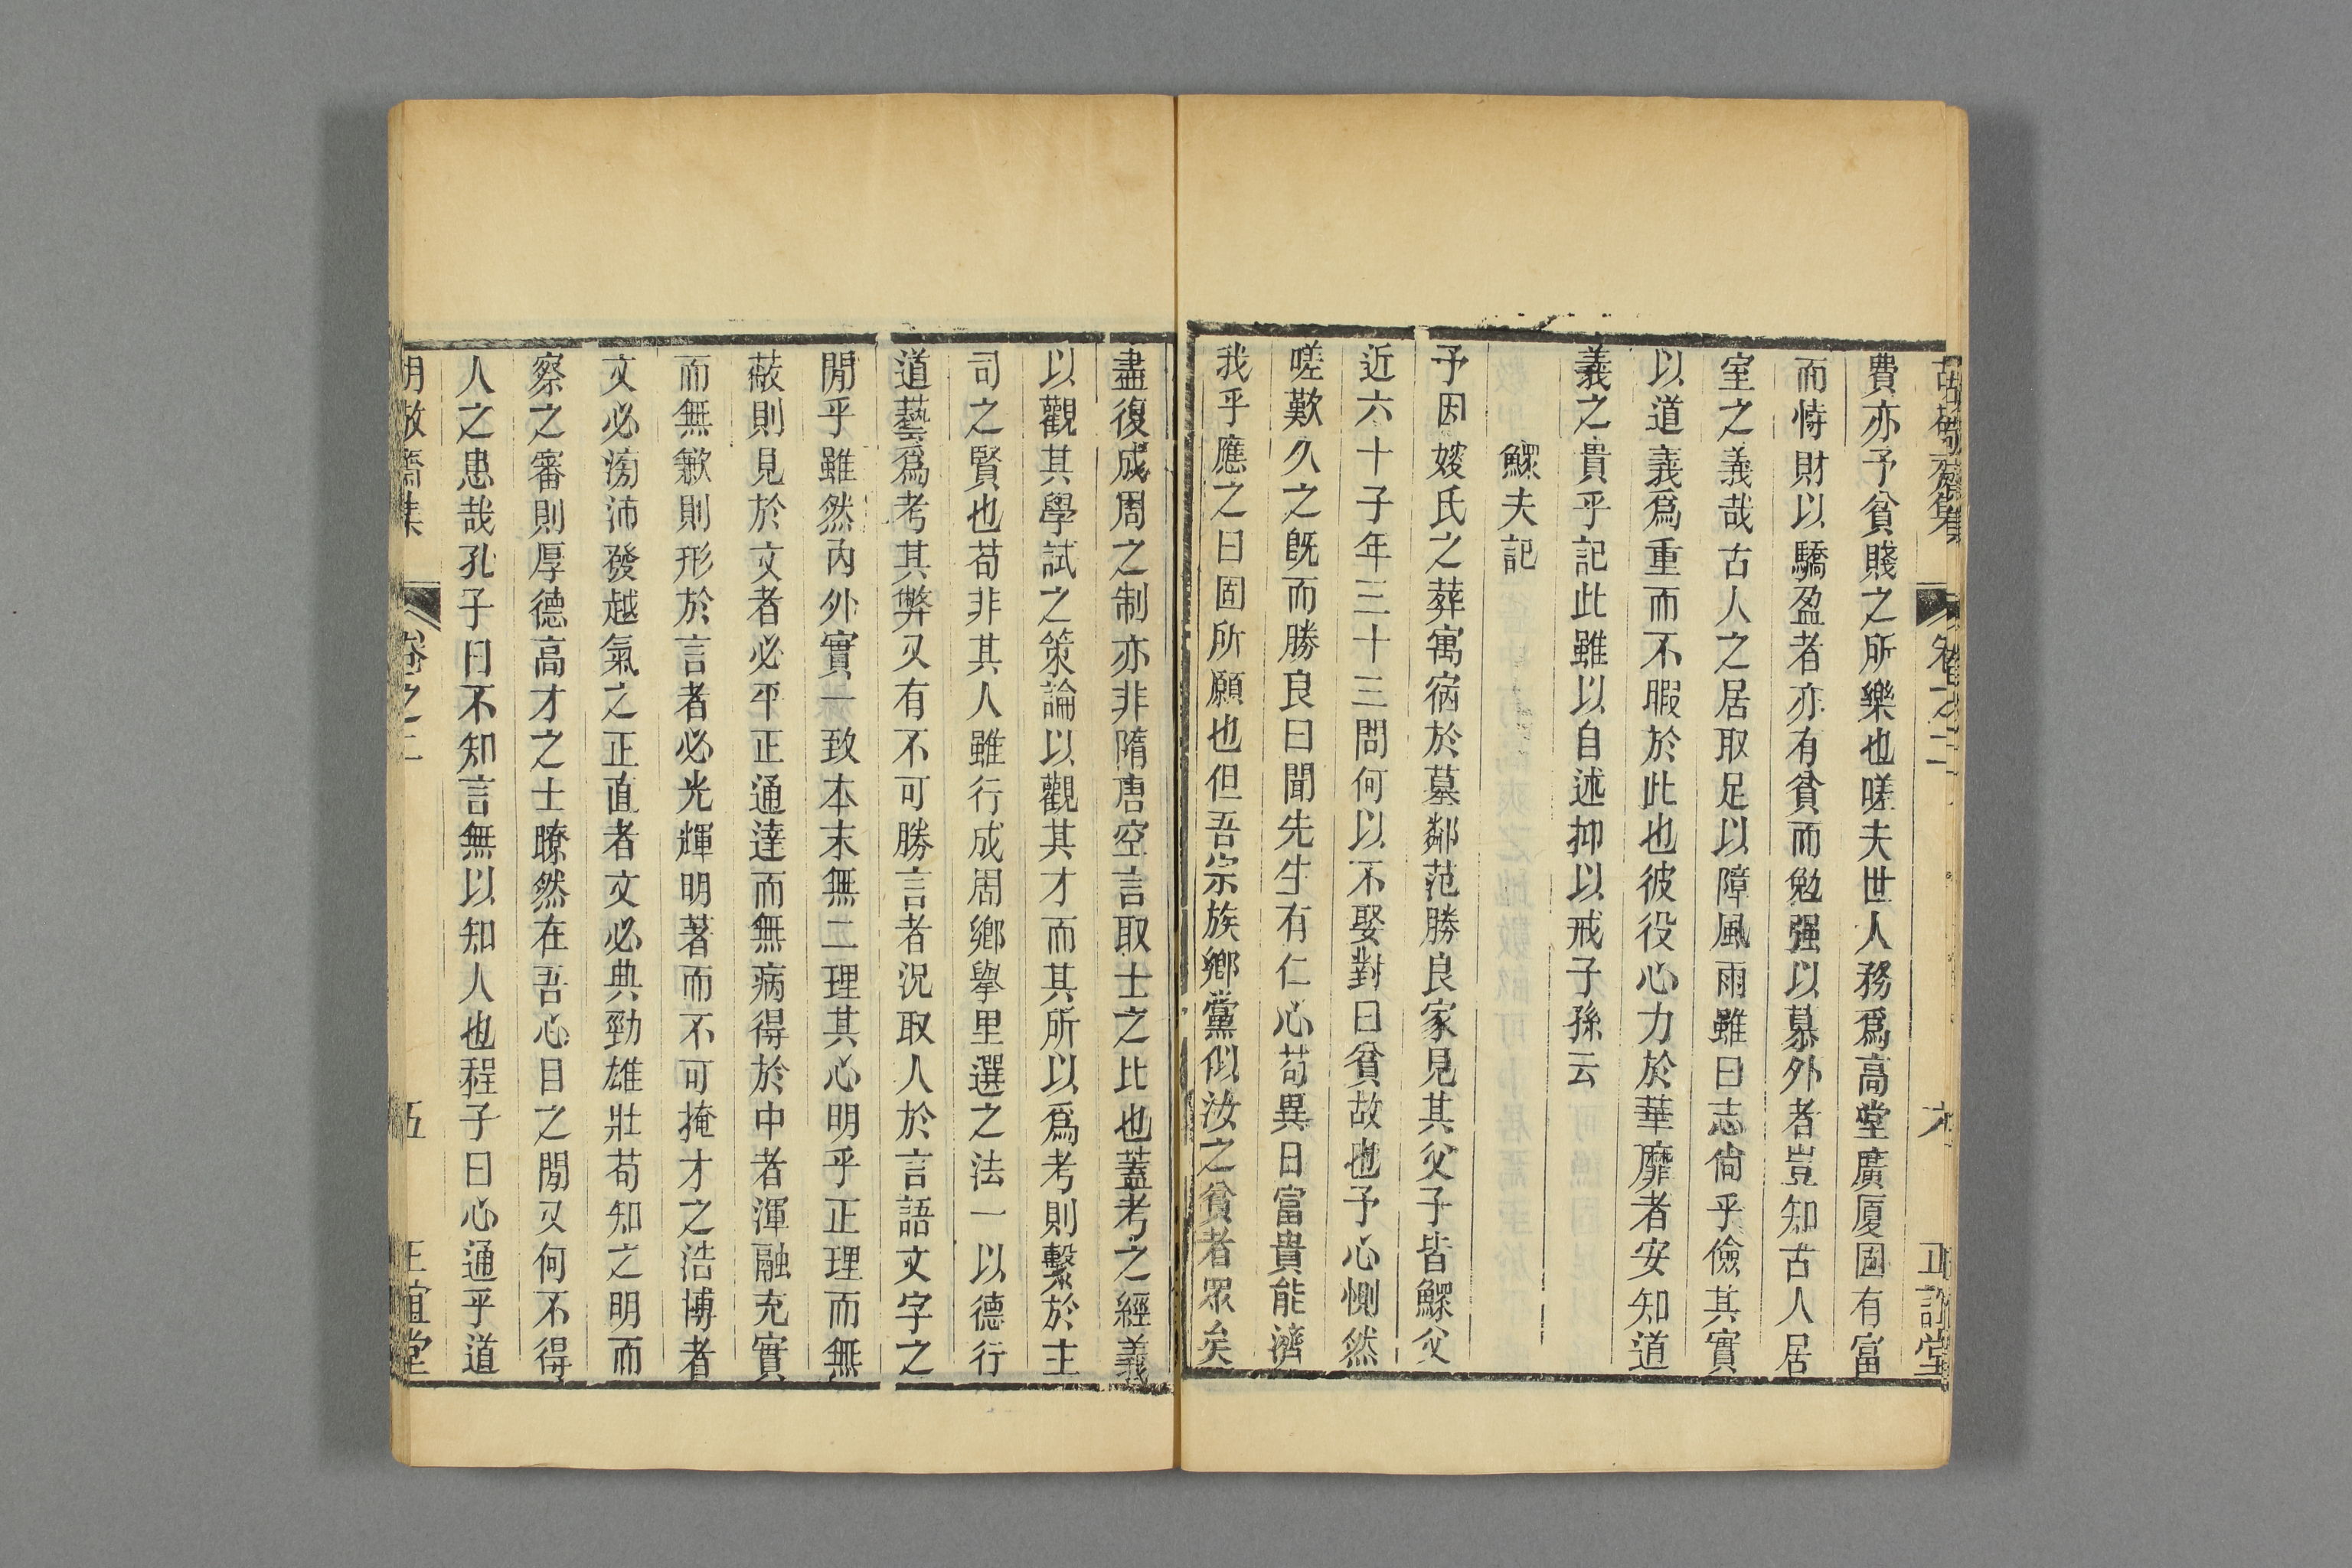 胡敬齋集　卷之二　九　正誼堂
費亦予貧賤之所樂也嗟夫世人務爲高堂廣厦固有富
而恃財以驕盈者亦有貧而勉强以慕外者豈知古人居
室之義哉古人之居取足以障風雨雖曰志尙乎儉其實
以道義爲重而不暇於此也彼役心力於華靡者安知道
義之貴乎記此雖以自述抑以戒子孫云
鰥夫記
予因㛮氏之葬寓宿於墓鄰范勝良家見其父子皆鰥父
近六十子年三十三問何以不娶對曰貧故也予心惻然
嗟歎久之旣而勝良曰聞先生有仁心苟異日富貴能濟
我乎應之曰固所願也但吾宗族鄉黨似汝之貧者眾矣
盡復成周之制亦非隋唐空言取士之比也蓋考之經義
以觀其學試之策論以觀其才而其所以爲考則繫於主
司之賢也苟非其人雖行成周鄉舉里選之法一以德行
道藝爲考其弊又有不可勝言者況取人於言語文字之
閒乎雖然內外實一致本末無二理其心明乎正理而無
蔽則見於文者必平正通達而無病得於中者渾融充實
而無歉則形於言者必光輝明著而不可掩才之浩博者
文必滂沛發越氣之正直者文必典勁雄壯苟知之明而
察之審則厚德高才之士瞭然在吾心目之閒又何不得
人之患哉孔子曰不知言無以知人也程子曰心通乎道
胡敬齋集　卷之二　五　正誼堂